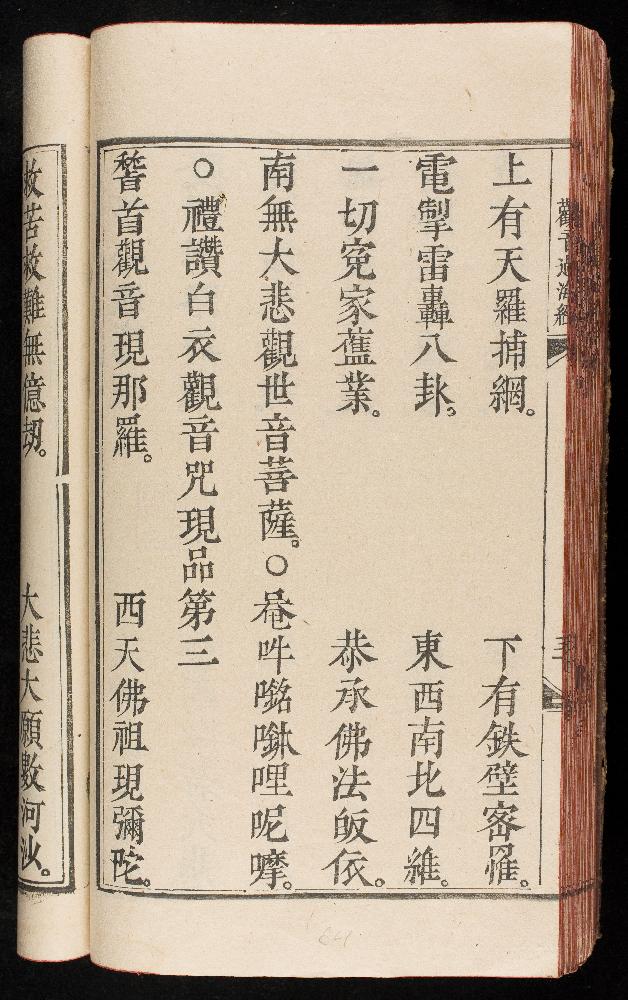 上有天羅捕網。 下有鉄壁密羅。
電掣雷轟八卦。 東西南北四維。
一切冤家舊業。 恭承佛法皈依。
南無大悲觀世音菩薩。○唵吽㘄㗚哩呢嚤。
○禮讚白衣觀音咒現品第三
稽首觀音現那羅。 西天佛祖現彌陀。
救苦救難無億劫。 大悲大願數河沙。